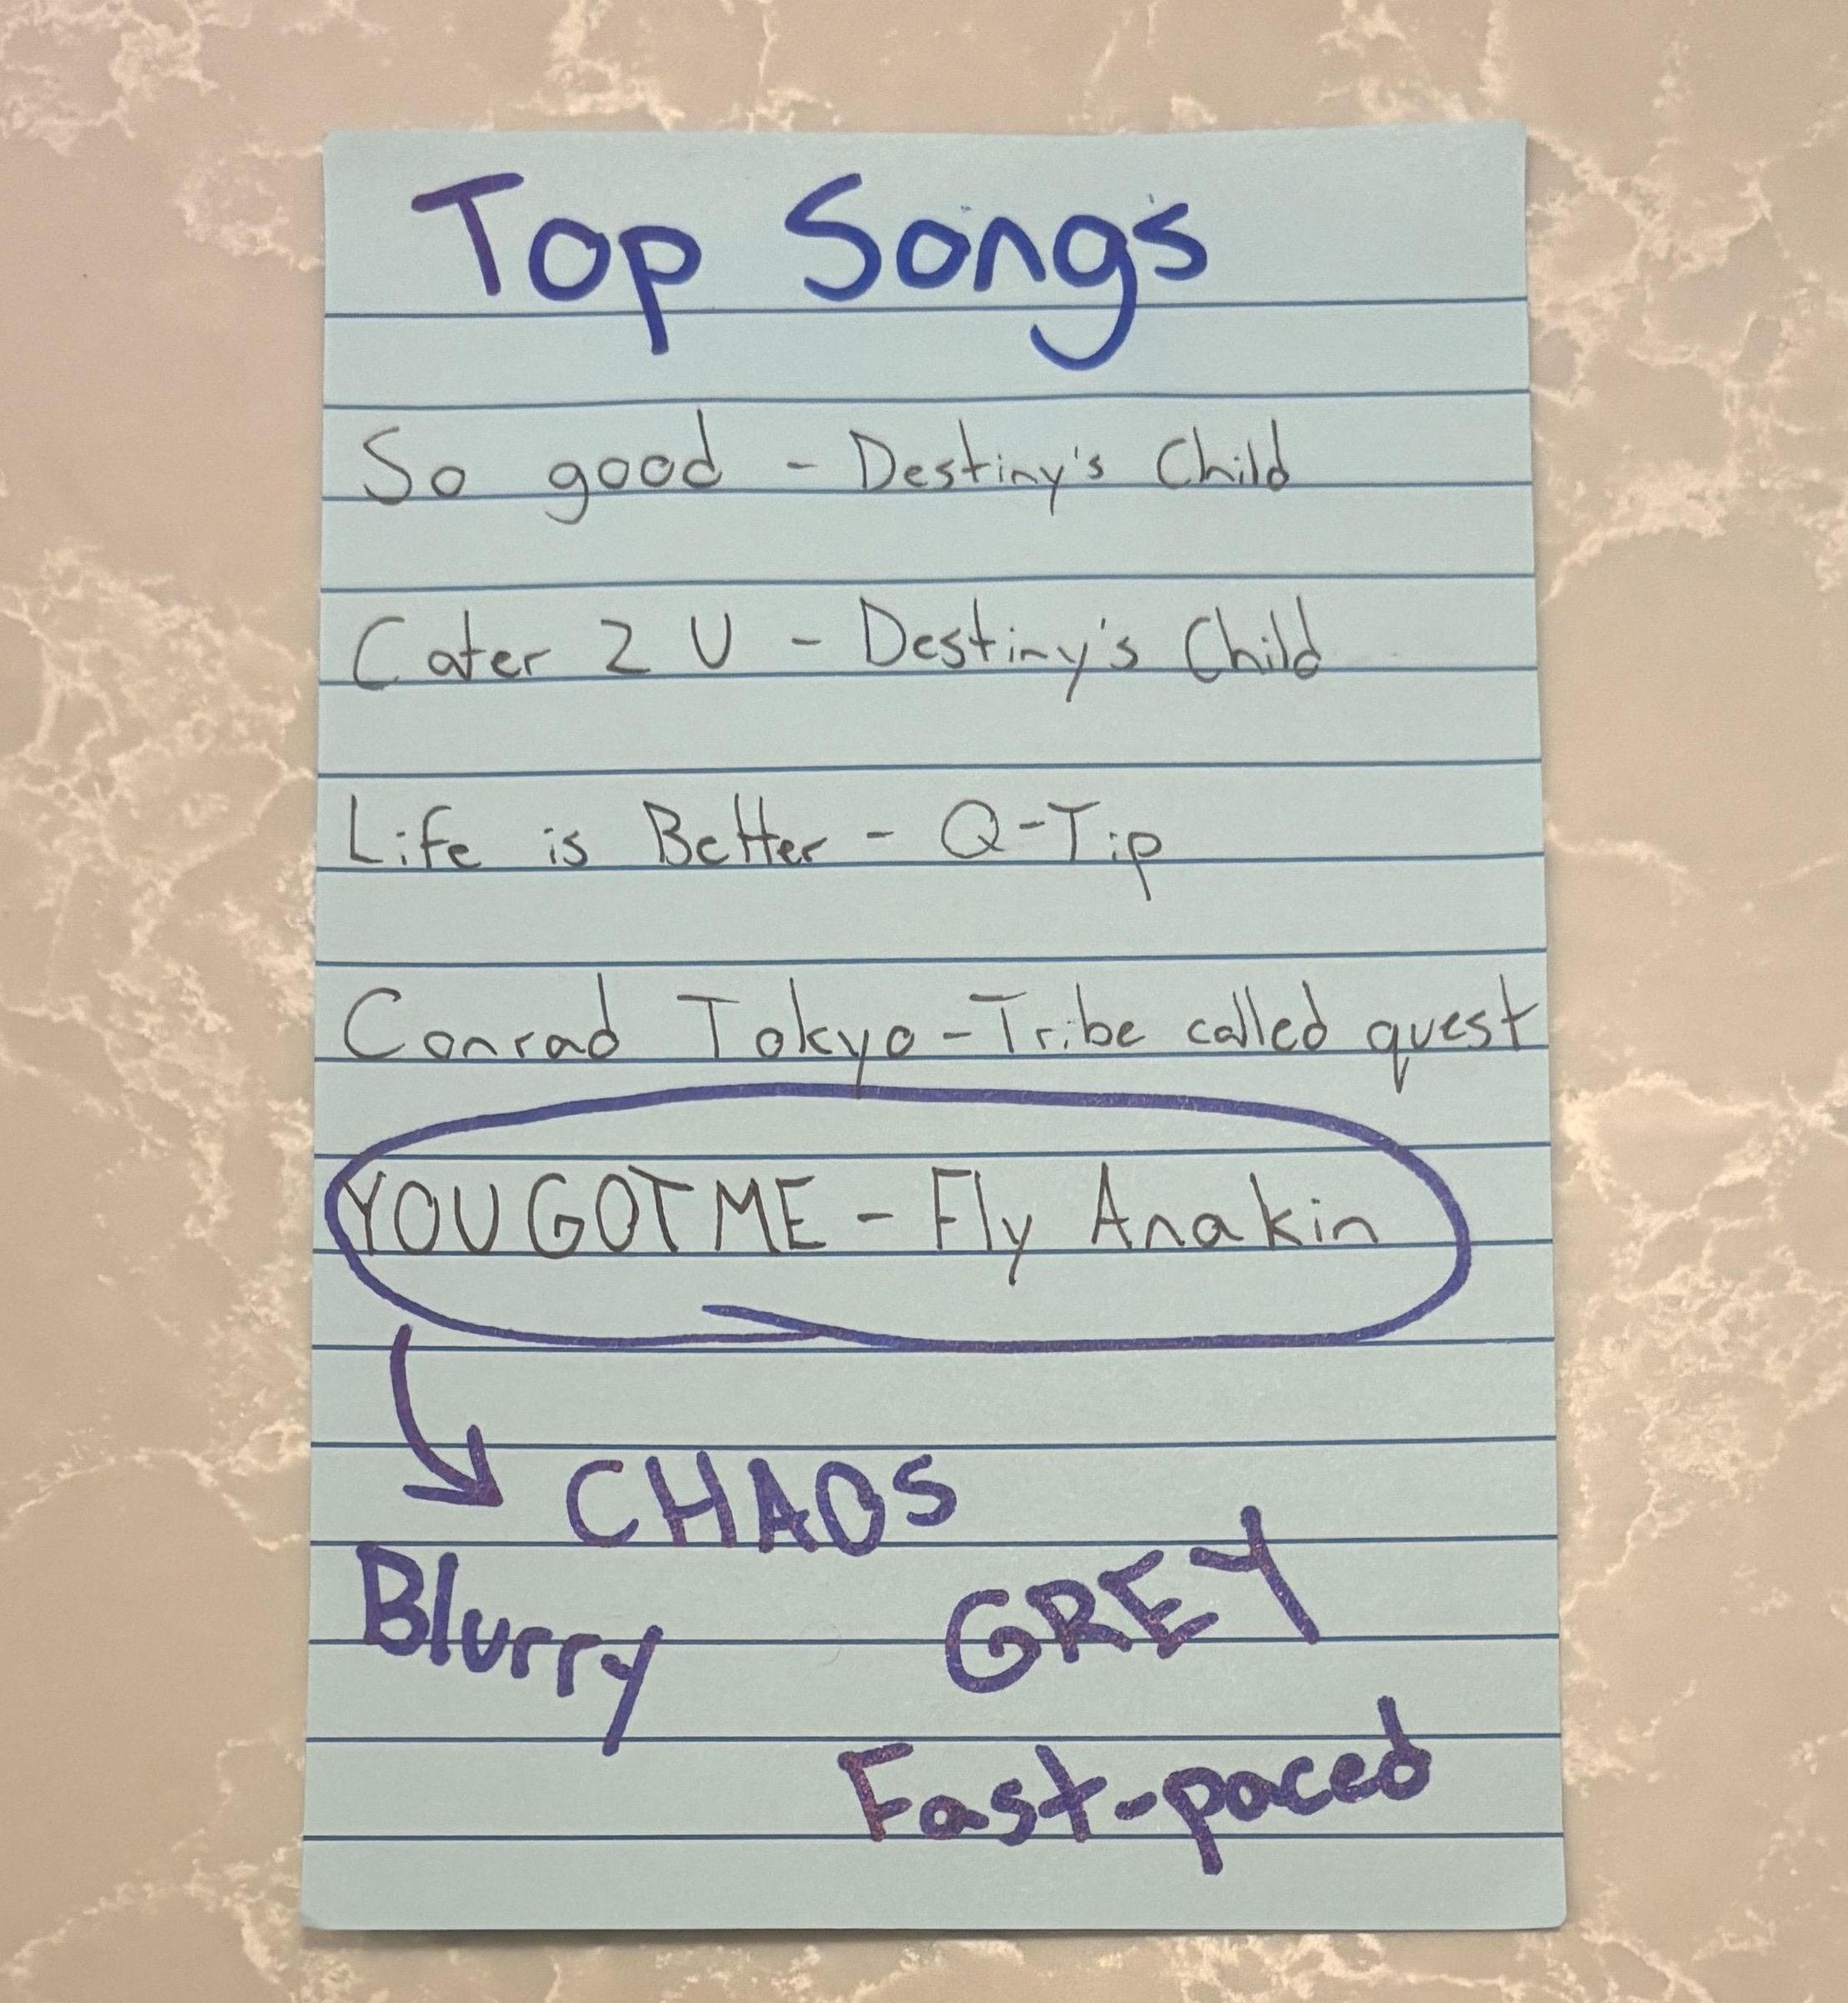 Top Songs
So good - Destiny's Child
Cater 2 U - Destiny's Child
Life is Better - Q-Tip
Conrad Tokyo - Tribe called quest
YOU GOT ME - Fly Anakin
CHAOS
Blurry
GREY
Fast-paced